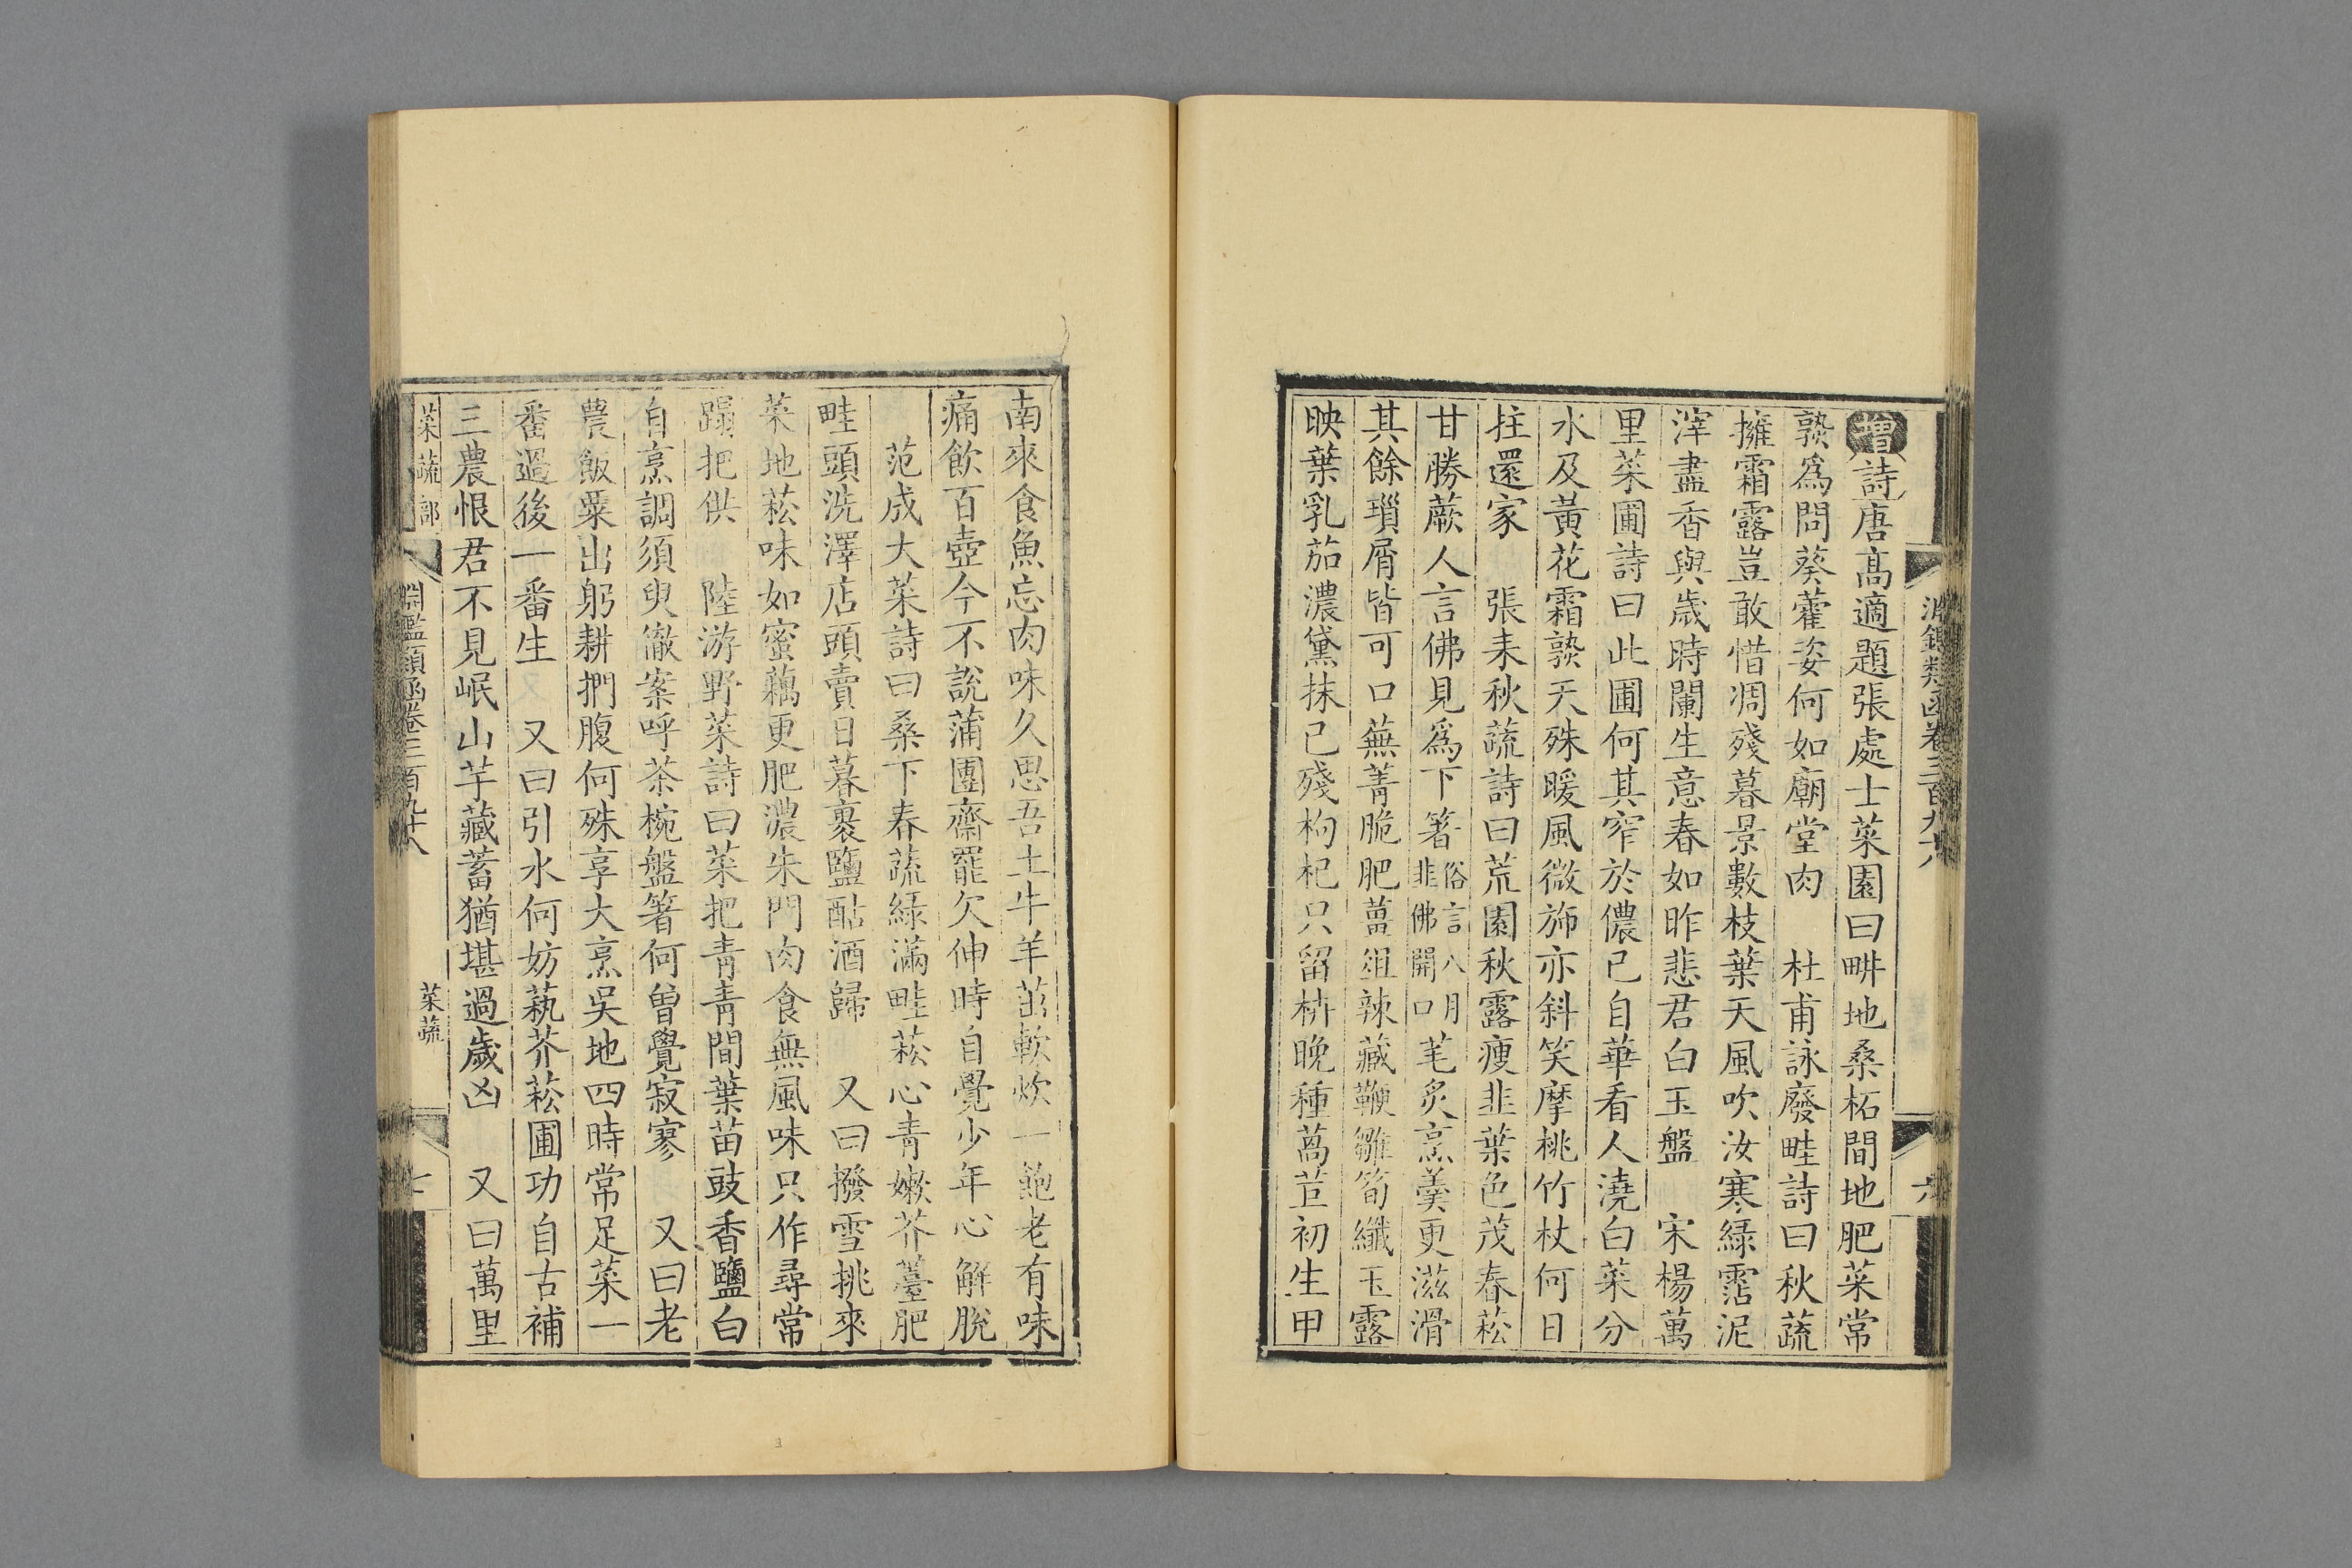 淵鑑類函卷三百九十八
六
增詩唐髙適題張處士菜園曰畊地桑柘間地肥菜常
熟爲問葵藿姿何如廟堂肉　杜甫詠廢畦詩曰秋蔬
擁霜露豈敢惜凋殘暮景數枝葉天風吹汝寒綠霑泥
滓盡香與歲時闌生意春如昨悲君白玉盤　宋楊萬
里菜圃詩曰此圃何其窄於儂已自華看人澆白菜分
水及黃花霜熟天殊暖風微斾亦斜笑摩桃竹杖何日
拄還家　張耒秋蔬詩曰荒園秋露瘦韭葉色茂春菘
甘勝蕨人言佛見爲下箸俗言八月韭佛開口芼炙烹羹更滋滑
其餘瑣屑皆可口蕪菁脆肥薑爼辣藏鞭雛筍纖玉露
映葉乳茄濃黛抹已殘枸杞只留枿晚種萵苣初生甲
南來食魚忘肉味久思吾土牛羊茁軟炊一飽老有味
痛飲百壺今不說蒲團齋罷欠伸時自覺少年心解脫
范成大菜詩曰桑下春蔬綠滿畦菘心青嫩芥薹肥
畦頭洗澤店頭賣日暮裹鹽酤酒歸　又曰撥雪挑來
菜地菘味如蜜藕更肥濃朱門肉食無風味只作尋常
蹋把供　陸游野菜詩曰菜把青青間葉苗豉香鹽白
自烹調須臾徹案呼茶椀盤箸何曾覺寂寥　又曰老
農飯粟出躬耕捫腹何殊享大烹吳地四時常足菜一
番過後一番生　又曰引水何妨蓺芥菘圃功自古補
三農恨君不見岷山芋藏蓄猶堪過歲凶　又曰萬里
菜蔬部
淵鑑類函卷三百九十八
菜蔬
七